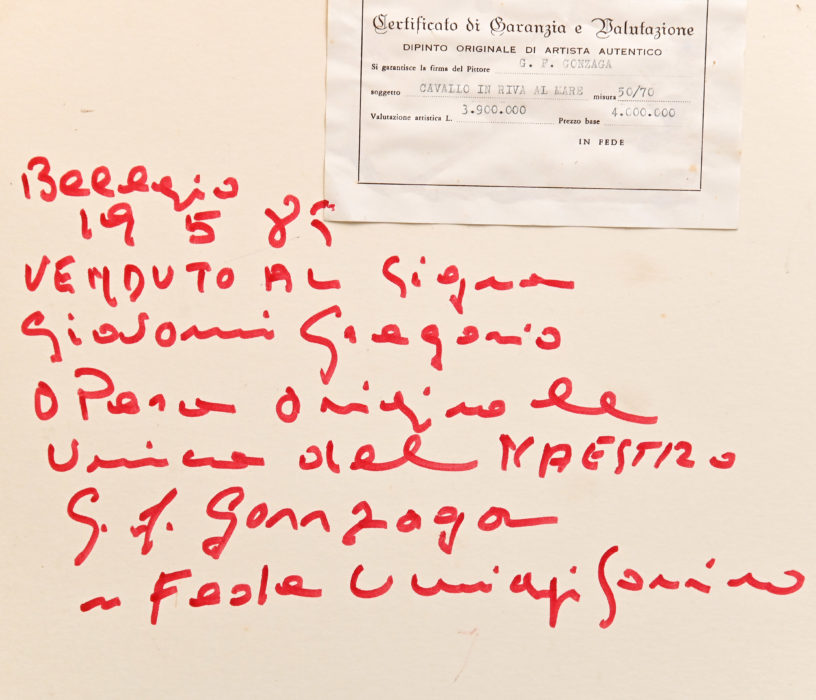 Certificato di Garanzia e Valutazione
DIPINTO ORIGINALE DI ARTISTA AUTENTICO
Si garantisce la firma del Pittore G. F. GONZAGA
soggetto CAVALLO IN RIVA AL MARE misura 50/70
Valutazione artistica L. 3.900.000 Prezzo base 4.000.000
IN FEDE
19 5 85
VENDUTO AL Signor
Giovanni Gregorio
OPera originale
Unica del MAESTRO
G. f. Gonnzaga
Fede